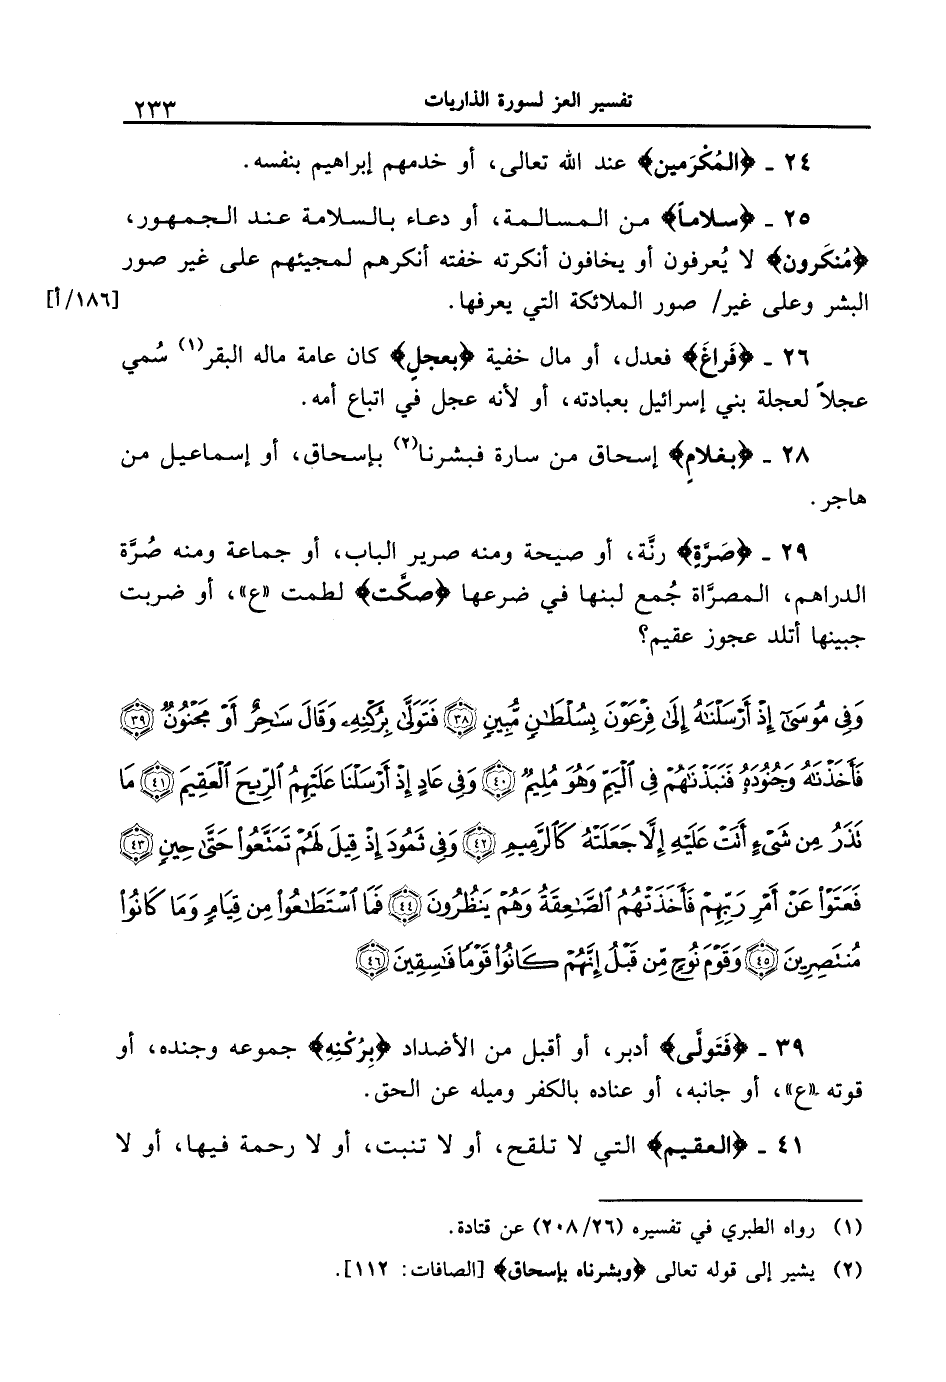 تفسير العز لسورة الذاريات
٢٣٣
٢٤ ـ ﴿المُكْرَمين﴾ عند الله تعالى، أو خدمهم إبراهيم بنفسه.
٢٥ ـ ﴿سلاماً﴾ من المسالمة، أو دعاء بالسلامة عند الجمهور،
﴿مُنكَرون﴾ لا يُعرفون أو يخافون أنكرته خفته أنكرهم لمجيئهم على غير صور
البشر وعلى غير/ صور الملائكة التي يعرفها.
[١٨٦/أ]
٢٦ ـ ﴿فَراغَ﴾ فعدل، أو مال خفية ﴿بعجلٍ﴾ كان عامة ماله البقر(١) سُمي
عجلاً لعجلة بني إسرائيل بعبادته، أو لأنه عجل في اتباع أمه.
٢٨ ـ ﴿بغلامٍ﴾ إسحاق من سارة فبشرنا(٢) بإسحاق، أو إسماعيل من
هاجر.
٢٩ ـ ﴿صَرَّةٍ﴾ رنَّة، أو صيحة ومنه صرير الباب، أو جماعة ومنه صُرَّة
الدراهم، المصرَّاة جُمع لبنها في ضرعها ﴿صكَّت﴾ لطمت «ع»، أو ضربت
جبينها أتلد عجوز عقيم؟
وَفِي مُوسَىٰٓ إِذْ أَرْسَلْنَٰهُ إِلَىٰ فِرْعَوْنَ بِسُلْطَٰنٍ مُّبِينٍ ﴿٣٨﴾ فَتَوَلَّىٰ بِرُكْنِهِۦ وَقَالَ سَٰحِرٌ أَوْ مَجْنُونٌ ﴿٣٩﴾
فَأَخَذْنَٰهُ وَجُنُودَهُۥ فَنَبَذْنَٰهُمْ فِي ٱلْيَمِّ وَهُوَ مُلِيمٌ ﴿٤٠﴾ وَفِي عَادٍ إِذْ أَرْسَلْنَا عَلَيْهِمُ ٱلرِّيحَ ٱلْعَقِيمَ ﴿٤١﴾ مَا
تَذَرُ مِن شَيْءٍ أَتَتْ عَلَيْهِ إِلَّا جَعَلَتْهُ كَٱلرَّمِيمِ ﴿٤٢﴾ وَفِي ثَمُودَ إِذْ قِيلَ لَهُمْ تَمَتَّعُوا۟ حَتَّىٰ حِينٍ ﴿٤٣﴾
فَعَتَوْا۟ عَنْ أَمْرِ رَبِّهِمْ فَأَخَذَتْهُمُ ٱلصَّٰعِقَةُ وَهُمْ يَنظُرُونَ ﴿٤٤﴾ فَمَا ٱسْتَطَٰعُوا۟ مِن قِيَامٍ وَمَا كَانُوا۟
مُنتَصِرِينَ ﴿٤٥﴾ وَقَوْمَ نُوحٍ مِّن قَبْلُ إِنَّهُمْ كَانُوا۟ قَوْمًا فَٰسِقِينَ ﴿٤٦﴾
٣٩ ـ ﴿فَتَولَّى﴾ أدبر، أو أقبل من الأضداد ﴿بِرُكْنِهِ﴾ جموعه وجنده، أو
قوته «ع»، أو جانبه، أو عناده بالكفر وميله عن الحق.
٤١ ـ ﴿العقيم﴾ التي لا تلقح، أو لا تنبت، أو لا رحمة فيها، أو لا
(١) رواه الطبري في تفسيره (٢٠٨/٢٦) عن قتادة.
(٢) يشير إلى قوله تعالى ﴿وبشرناه بإسحاق﴾ [الصافات: ١١٢].